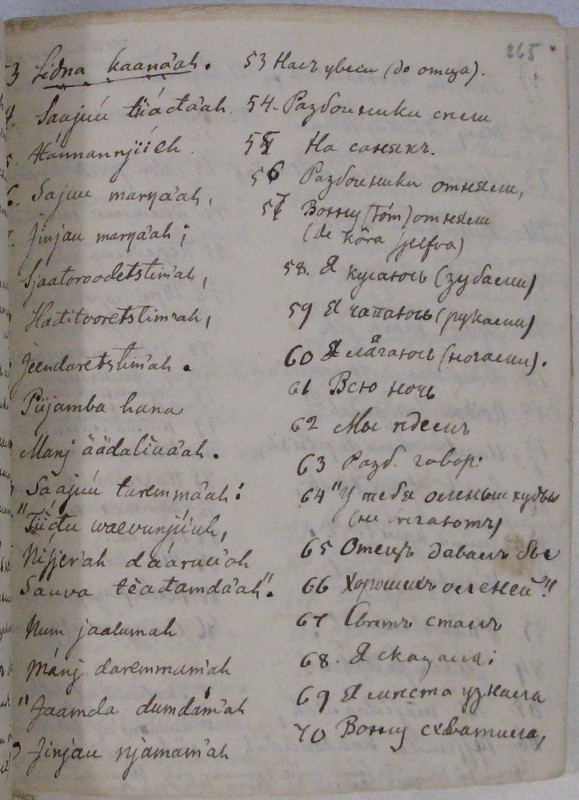 265
3 Sidna kaanáah. 53 Насъ увели (до отца).
4. Saajuú tiiáctáah 54. Разбойники спели
5. Hánnannjiéh 55 На санякъ.
6. Sajuu marŋáah, 56 Разбойники отняли,
Jinjau marŋáah; 57 Вожжу (töm) отняли
(de köra sjelfva)
Sjaatoroodetstimáh, 58. Я кусаюсь (зубами)
Haditvoretstimáh, 59 Я чапаюсь (руками)
Jeendaretstimáh. 60 Я лягаюсь (ногами).
Piijamba hana 61 Всю ночь
Manj äädaliuáah. 62 Мы ѣдемъ
Sáajuú taremmáah: 63 Разб. говор:
"Tiidu waevunjúuh, 64 "У тебя олены худы
(не бѣгаютъ)
Nísjeráh dáaruioh 65 Отецъ давалъ бы
Sauva téadamdáah". 66 Хорошихъ оленей"
Num jaalumah 67 Свѣтъ сталъ
Mánj daremmamáh 68. Я сказала:
"Jaamda dumdámáh 69 Я мѣста узнала
Jinjau njamamáh 70 Вожжу схватила,